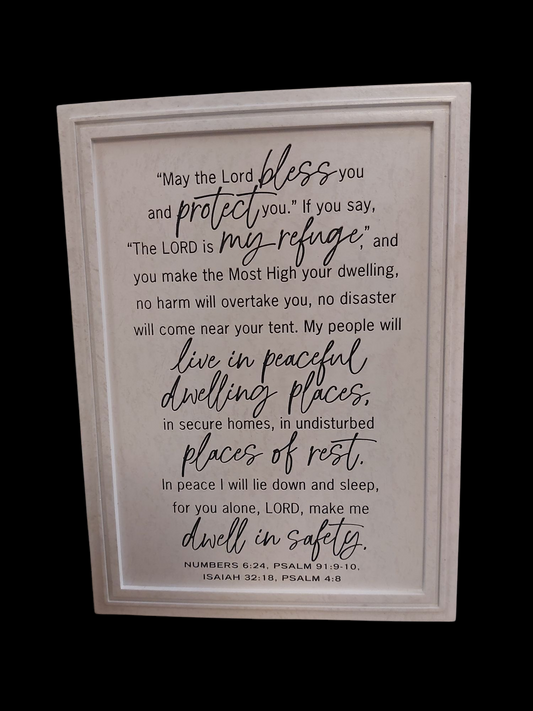 “May the Lord bless you
and protect you.” If you say,
“The LORD is my refuge,” and
you make the Most High your dwelling,
no harm will overtake you, no disaster
will come near your tent. My people will
live in peaceful
dwelling places,
in secure homes, in undisturbed
places of rest.
In peace I will lie down and sleep,
for you alone, LORD, make me
dwell in safety.
NUMBERS 6:24, PSALM 91:9-10,
ISAIAH 32:18, PSALM 4:8